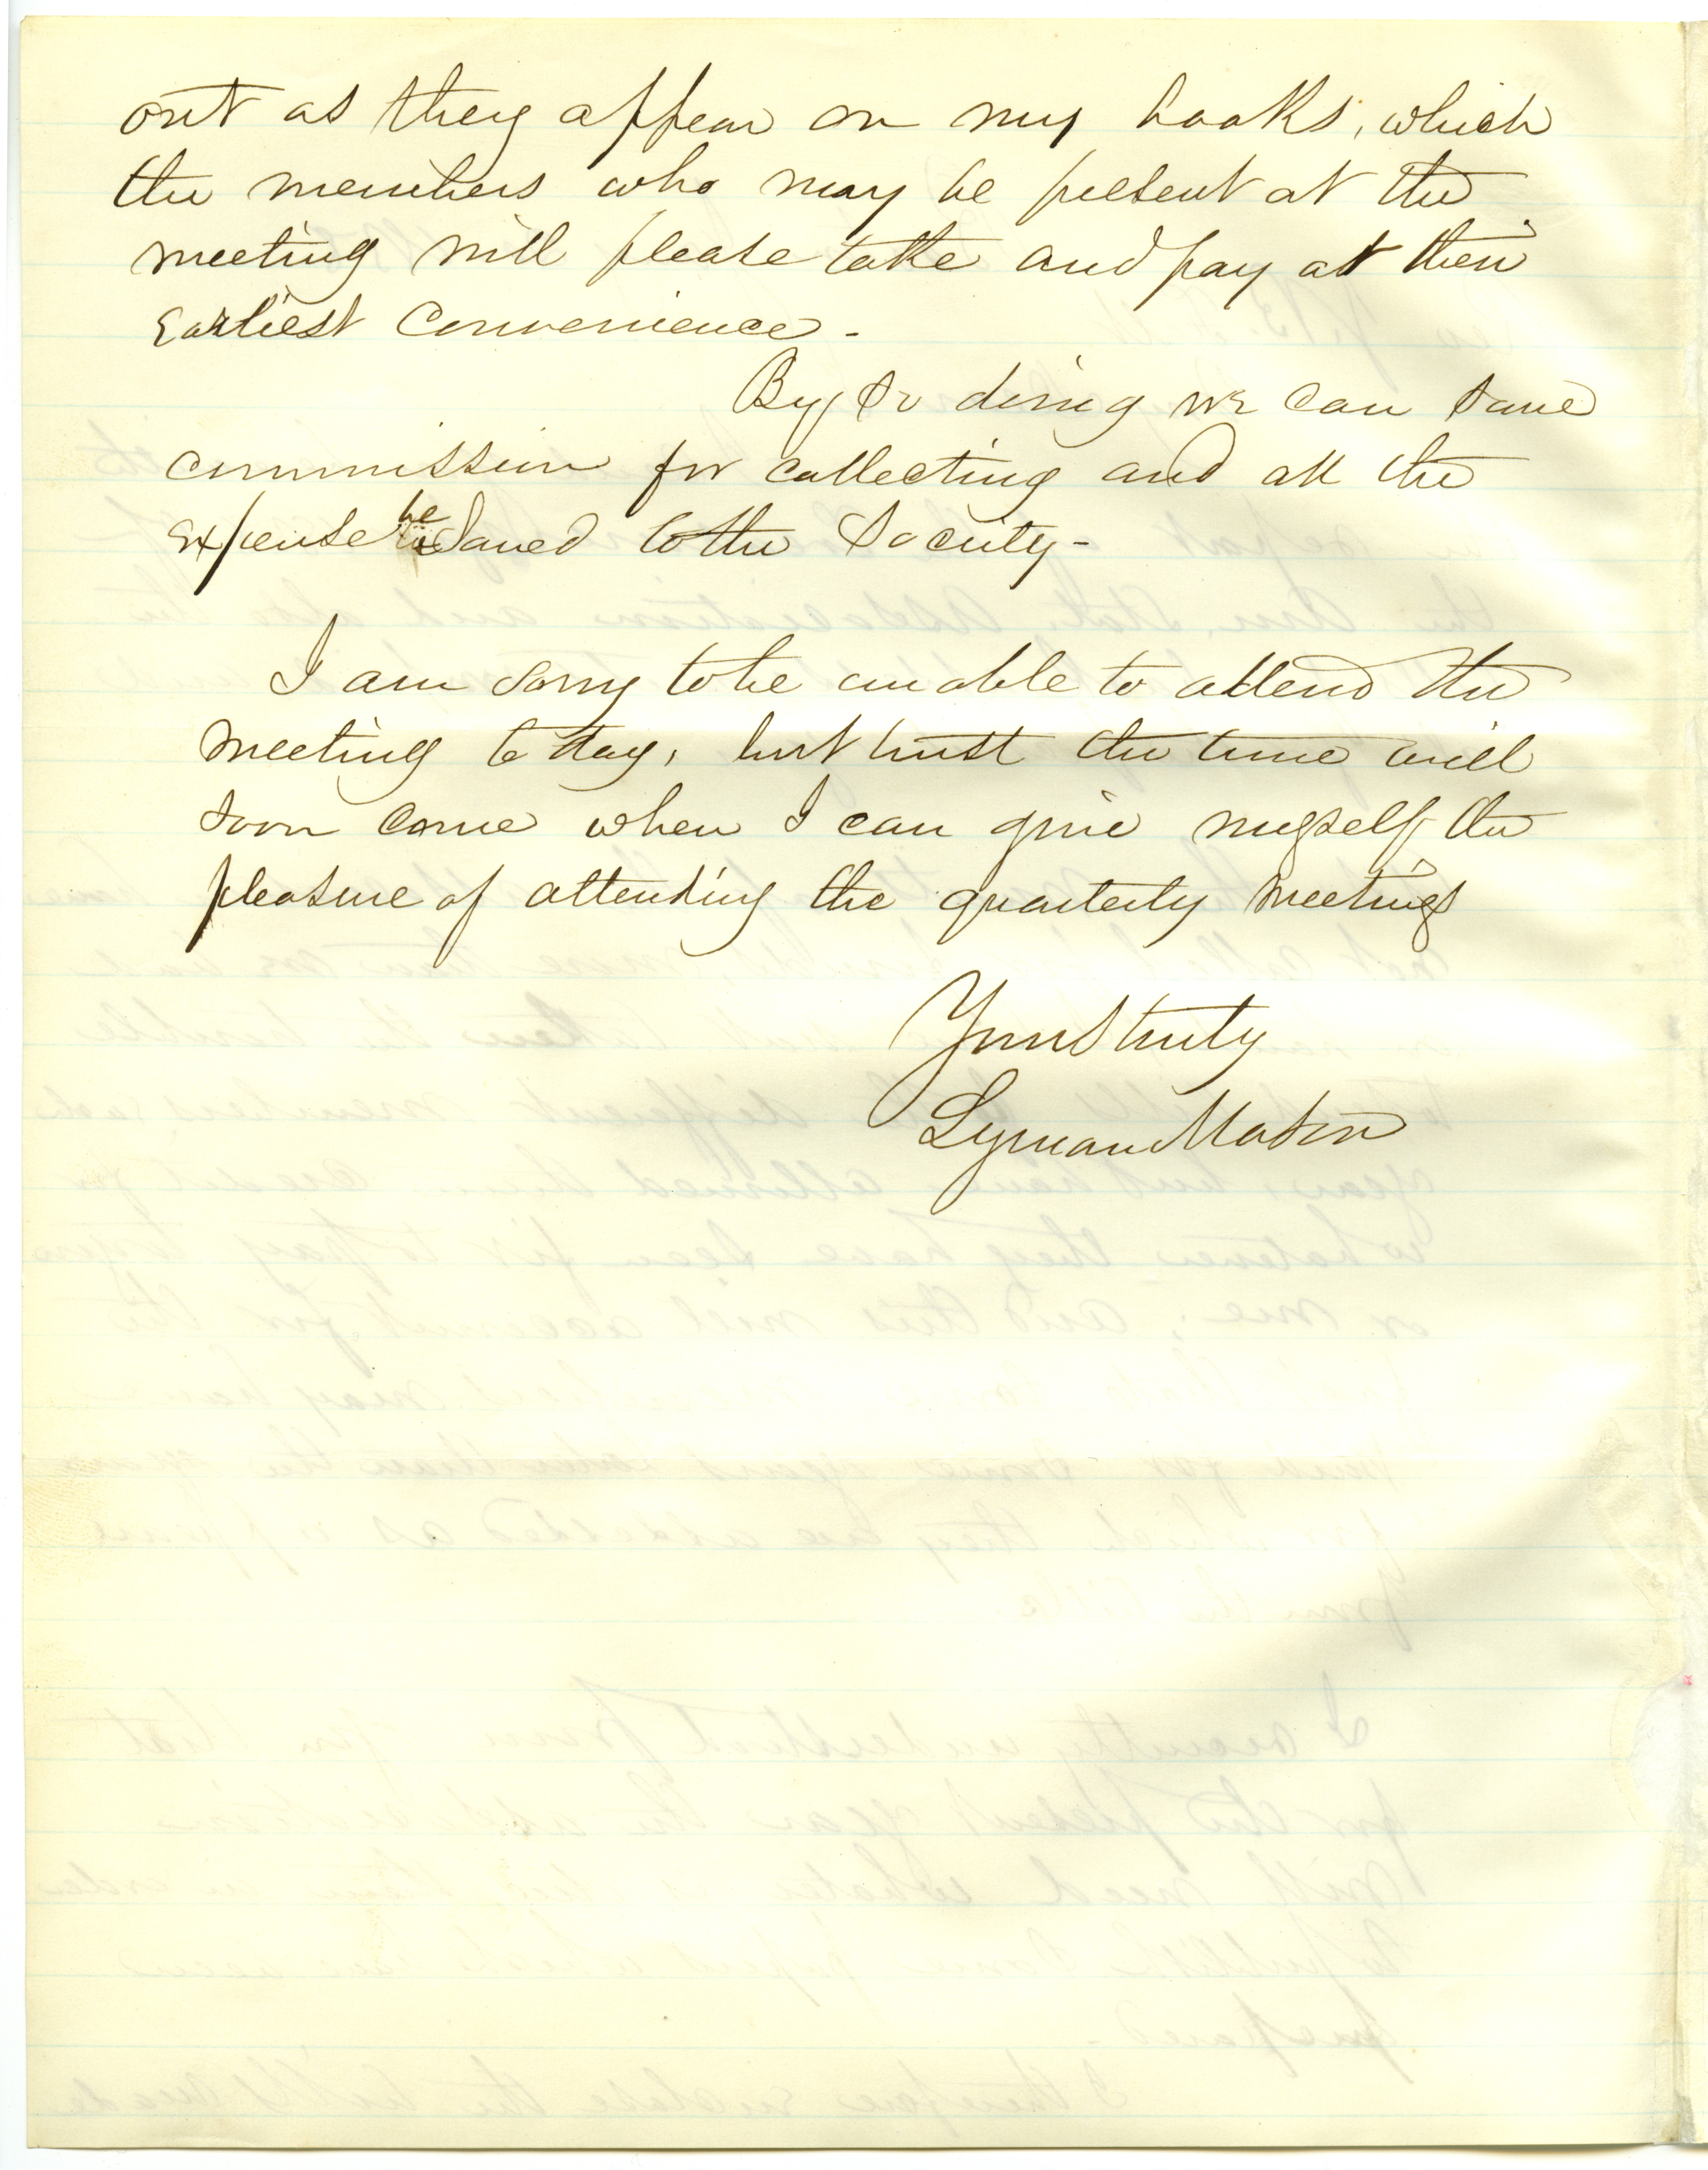 out as they appear on my books, which
the members who may be present at the
meeting will please take and pay at their
Earliest Convenience -
By so doing we can save
commission for collecting and all the
expense be saved to the Society -
I am sorry to be unable to attend the
meeting to day, but trust the time will
soon come when I can give myself the
pleasure of attending the quarterly meetings
Yours truly
Lyman Mason